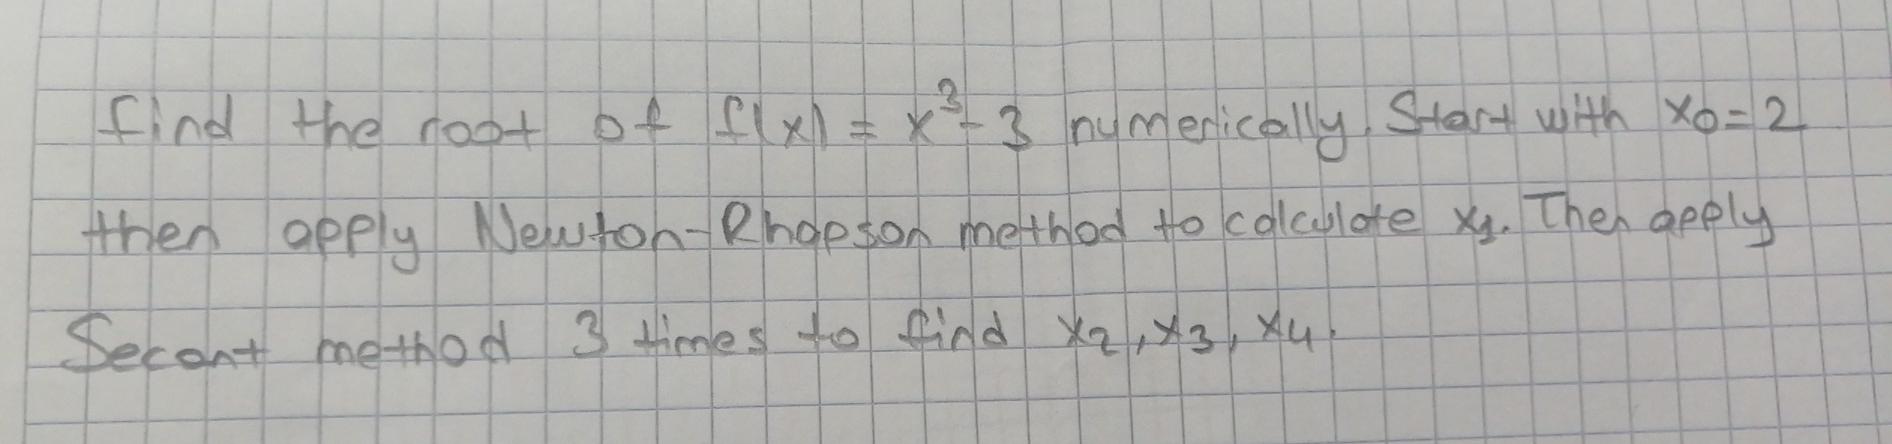 find the root of f(x) = x³-3 numerically. Start with x0=2
then apply Newton-Rhapson method to calculate x1. Then apply
Secant method 3 times to find x2, x3, x4.